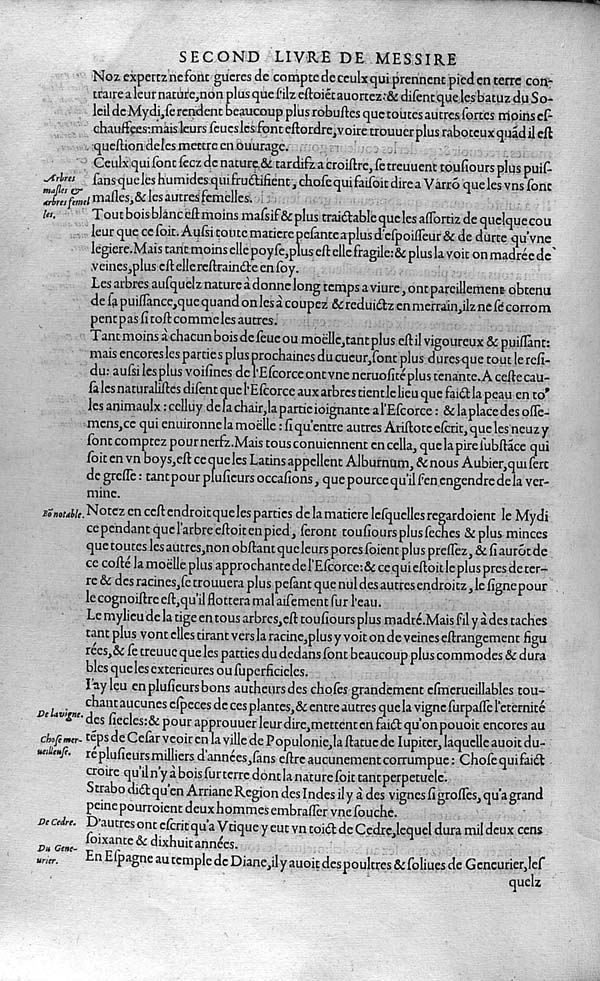 SECOND LIVRE DE MESSIRE
Noz expertz ne font gueres de compte de ceulx qui prennent pied en terre con-
traire a leur nature, non plus que s'ilz estoiẽt auortez: & disent que les batuz du So-
leil de Mydi, se rendent beaucoup plus robustes que toutes autres sortes moins es-
chauffees: mais leurs seues les font estordre, voire trouuer plus raboteux quãd il est
question de les mettre en ouurage.
Ceulx qui sont secz de nature, & tardifz a croistre, se treuuent tousiours plus puis-
Arbres
masles &
arbres femel
les.
sans que les humides qui fructifient, chose qui faisoit dire a Varrõ que les vns sont
masles, & les autres femelles.
Tout bois blanc est moins massif & plus traictable que les assortiz de quelque cou
leur que ce soit. Aussi toute matiere pesante a plus d'espoisseur & de durte qu'vne
legiere. Mais tant moins elle poyse, plus est elle fragile: & plus la voit on madrée de
veines, plus est elle restraincte en soy.
Les arbres ausquelz nature à donne long temps a viure, ont pareillement obtenu
de sa puissance, que quand on les à coupez & reduictz en merrain, ilz ne se corrom
pent pas si tost comme les autres.
Tant moins à chacun bois de seue ou moëlle, tant plus est il vigoureux & puissant:
mais encores les parties plus prochaines du cueur, sont plus dures que tout le resi-
du: aussi les plus voisines de l'Escorce ont vne neruosité plus tenante. A ceste cau-
sa les naturalistes disent que l'Escorce aux arbres tient le lieu que faict la peau en to9
les animaulx: celluy de la chair, la partie ioignante a l'Escorce: & la place des osse-
mens, ce qui enuironne la moëlle: si qu'entre autres Aristote escrit, que les neuz y
sont comptez pour nerfz. Mais tous conuiennent en cella, que la pire substãce qui
soit en vn boys, est ce que les Latins appellent Alburnum, & nous Aubier, qui sert
de gresse: tant pour plusieurs occasions, que pource qu'il s'en engendre de la ver-
mine.
Bõ notable.
Notez en cest endroit que les parties de la matiere lesquelles regardoient le Mydi
ce pendant que l'arbre estoit en pied, seront tousiours plus seches & plus minces
que toutes les autres, non obstant que leurs pores soient plus pressez, & si aurõt de
ce costé la moëlle plus approchante de l'Escorce: & ce qui estoit le plus pres de ter-
re & des racines, se trouuera plus pesant que nul des autres endroitz, le signe pour
le cognoistre est, qu'il flottera mal aisement sur l'eau.
Le mylieu de la tige en tous arbres, est tousiours plus madré. Mais s'il y à des taches
tant plus vont elles tirant vers la racine, plus y voit on de veines estrangement figu
rées, & se treuue que les patties du dedans sont beaucoup plus commodes & dura
bles que les exterieures ou superficieles.
I'ay leu en plusieurs bons autheurs des choses grandement esmerueillables tou-
chant aucunes especes de ces plantes, & entre autres que la vigne surpasse l'eternité
De la vigne.
des siecles: & pour approuuer leur dire, mettent en faict qu'on pouoit encores au
Chose mer-
ueilleuse.
tẽps de Cesar veoir en la ville de Populonie, la statue de Iupiter, laquelle auoit du-
ré plusieurs milliers d'années, sans estre aucunement corrumpue: Chose qui faict
croire qu'il n'y à bois sur terre dont la nature soit tant perpetuele.
Strabo dict qu'en Arriane Region des Indes il y à des vignes si grosses, qu'a grand
peine pourroient deux hommes embrasser vne souche.
De Cedre.
D'autres ont escrit qu'a Vtique y eut vn toict de Cedre, lequel dura mil deux cens
soixante & dixhuit années.
Du Gene-
urier.
En Espagne au temple de Diane, il y auoit des poultres & soliues de Geneurier, les
quelz